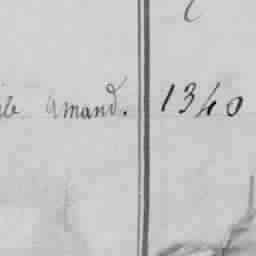 Amand. 1340